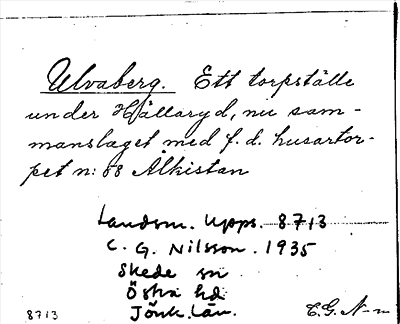 Ulvaberg. Ett torpställe
under Hällaryd, nu sam-
manslaget med f. d. husartor-
pet n: 88 Älkistan
Landsm. Upps. 8713
C. G. Nilsson. 1935
Skede sn
Östra hd
Jönk. län.
8713
C. G. N-n